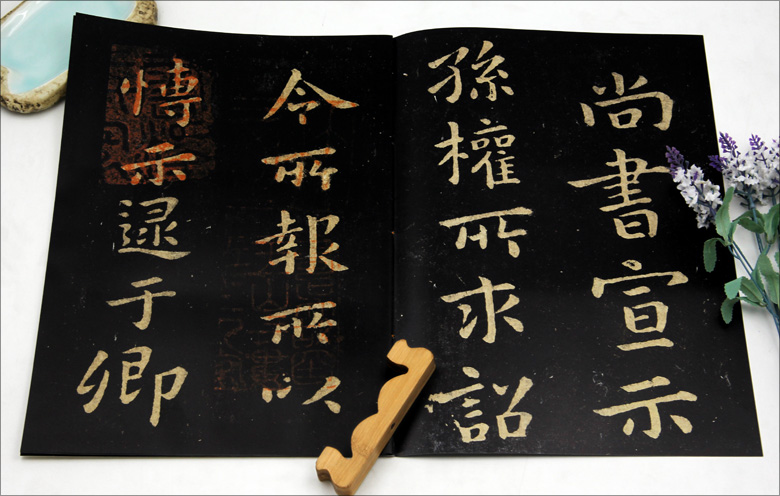 尚書宣示
孫權所求詔
令所報所以
愽示逮于卿